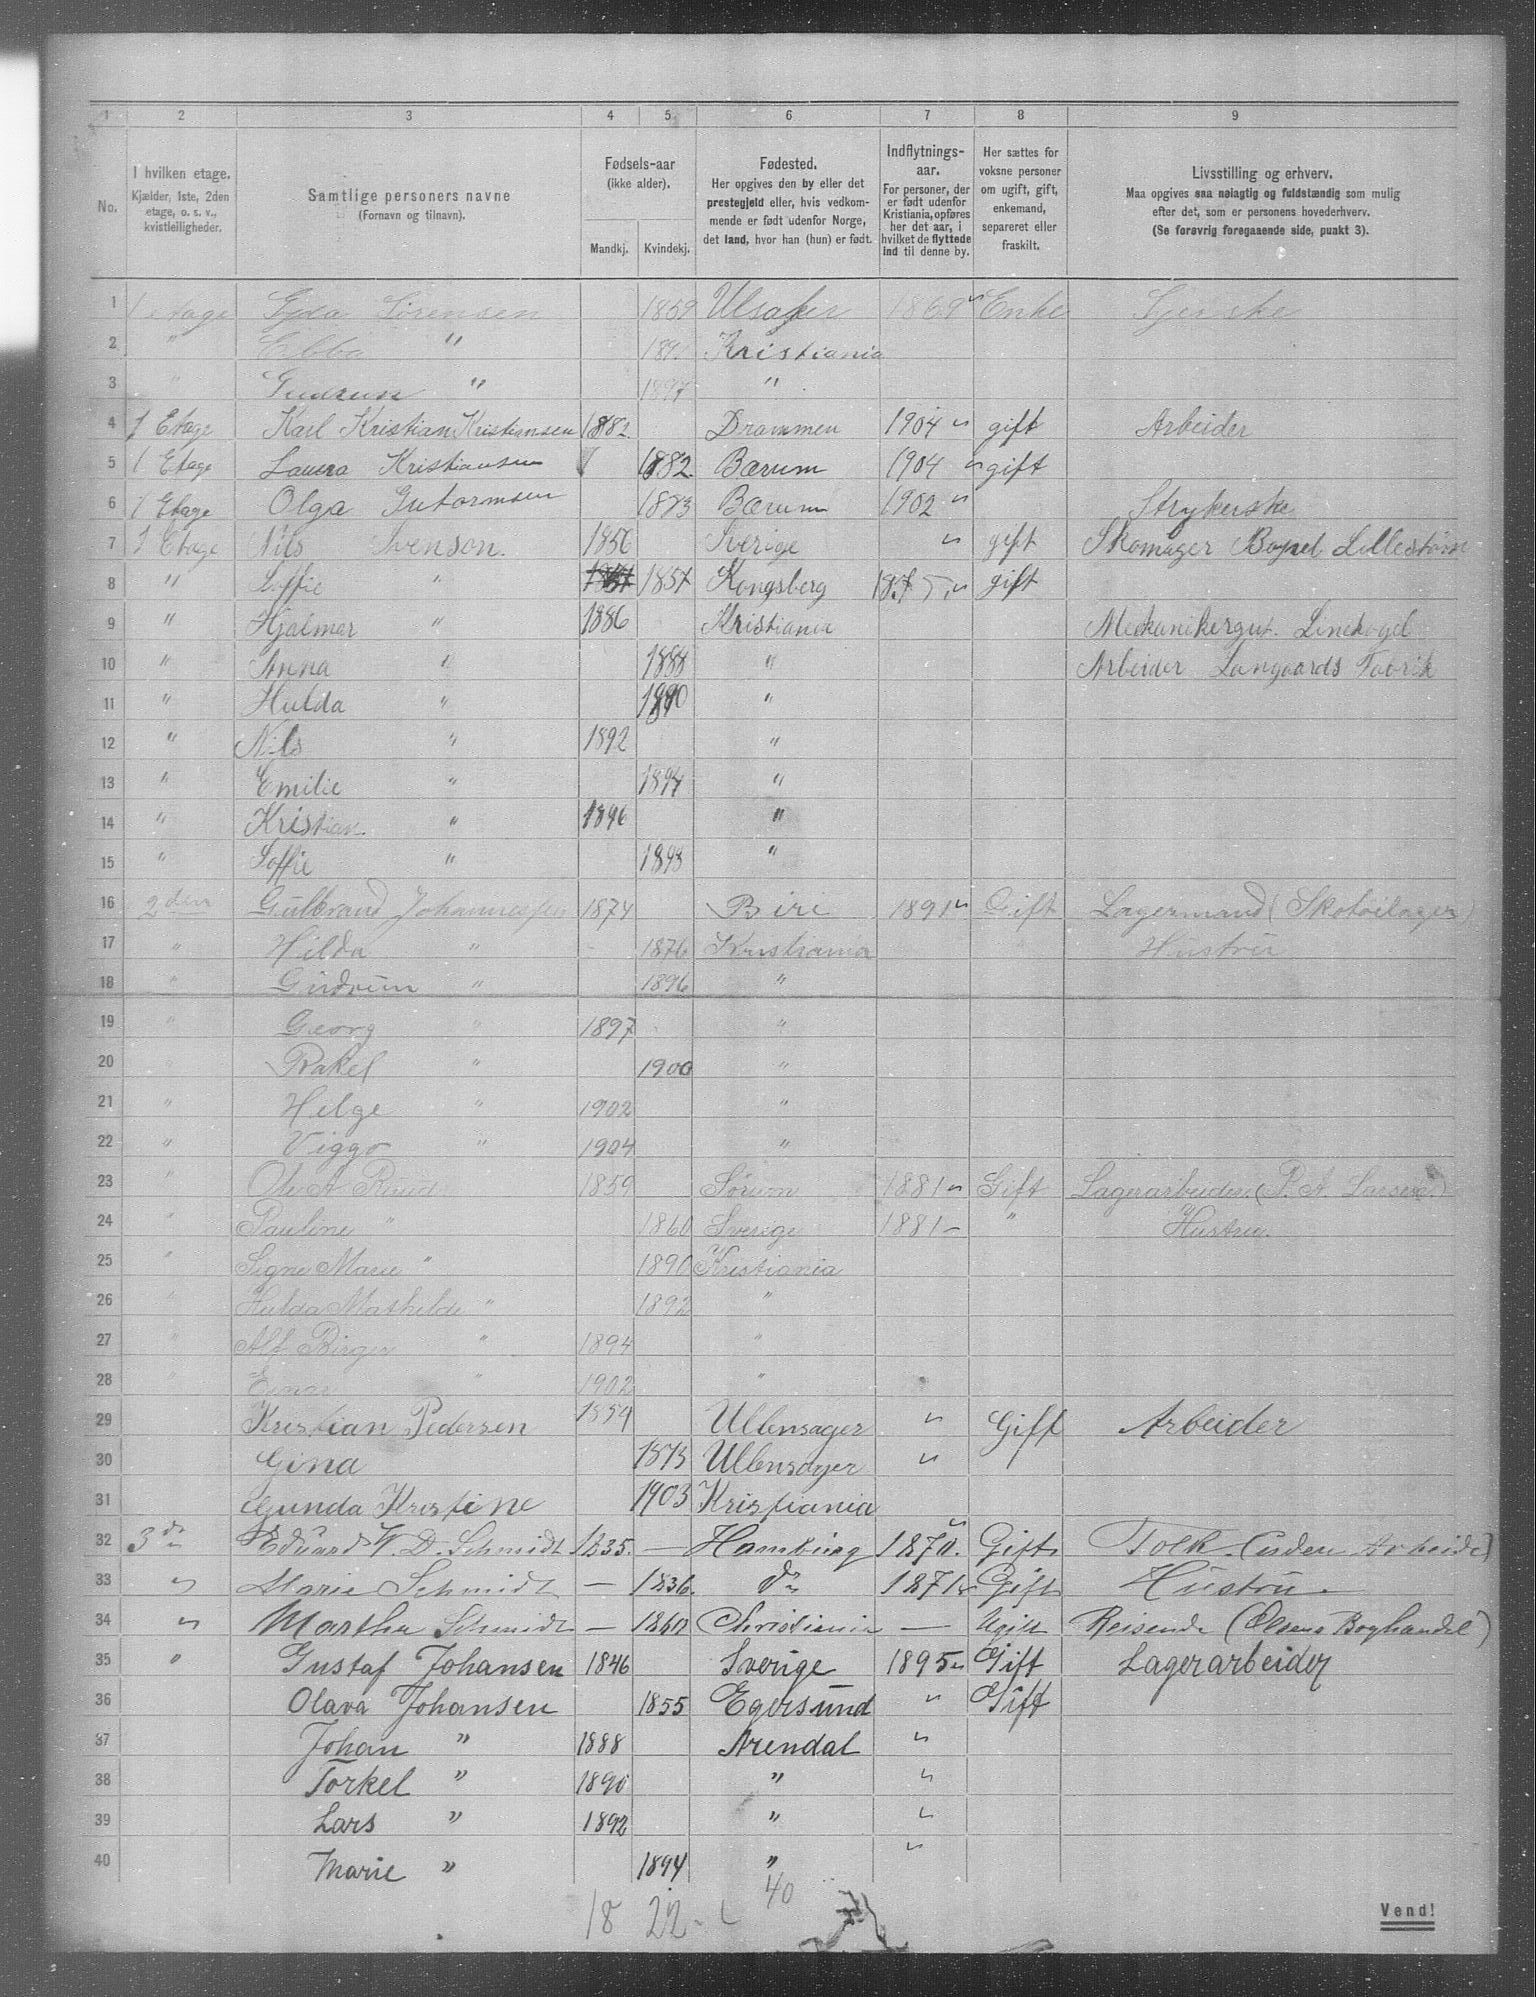 1 2 3 4 5 6 7 8 9
No.
I hvilken etage.
Kjælder, 1ste, 2den
etage, o. s. v.,
kvistleiligheder.
Samtlige personers navne
(Fornavn og tilnavn).
Fødsels-aar
(ikke alder).
Mandkj. Kvindekj.
Fødested.
Her opgives den by eller det
prestegjeld eller, hvis vedkom-
mende er født udenfor Norge,
det land, hvor han (hun) er født.
Indflytnings-
aar.
For personer, der
er født udenfor
Kristiania, opføres
her det aar, i
hvilket de flyttede
ind til denne by.
Her sættes for
voksne personer
om ugift, gift,
enkemand,
separeret eller
fraskilt.
Livsstilling og erhverv.
Maa opgives saa nøiagtig og fuldstændig som mulig
efter det, som er personens hovederhverv.
(Se forøvrig foregaaende side, punkt 3).
1 1 etage Sørensen 1859 Ulsaker 1869 Enke
2 " Ebba " Kristiania
3 " Gudrun " 1897 "
4 1 Etage Karl Kristian Kristiansen 1882 Drammen 1904 gift Arbeider
5 1 Etage Laura Kristiansen 1882. Bærum 1904 gift
6 1 Etage Olga Gutormsen 1883 Bærum 1902 Strykerske
7 1 Etage Nils Svenson. 1856 Sverige gift Skomager Lillestrøm
8 " Soffie " 1857 Kongsberg gift
9 " Hjalmar " 1886 Kristiania Mekanikergut.
10 " Anna " 1888 " Arbeider Langaards Fabrik
11 " Hulda " 1890 "
12 " Nils " 1892 "
13 " Emilie " 1894 "
14 " Kristian " 1896 "
15 " Soffie " 1898 "
16 2den Gulbrand Johannessen 1874 Biri 1891 Gift Lagermand (Skotøilager)
17 " Hilda " 1876 Kristiania " Hustru
18 " Gudrun " 1896 "
19 " Georg " 1897 "
20 " Rakel " 1900 "
21 " Helge " 1902 "
22 " Viggo " 1904 "
23 " Ole A Ruud 1859 Sørum 1881 Gift Lagerarbeider (P. A. Larsen)
24 " Pauline " 1860 Sverige 1881 " Hustru.
25 " Signe Marie " 1890 Kristiania
26 " Hulda Mathilde " 1892 "
27 " Alf Birger " 1894 "
28 " Einar " 1902 "
29 Kristian Pedersen 1859 Ullensager " Gift Arbeider
30 Gina 1873 Ullensager "
31 Gunda Kristine 1903 Kristiania
32 3de Eduard W. D. Schmidt 1835. — Hamburg 1870. Gift Tolk (uden Arbeide)
33 " Marie Schmidt — 1836. do 1871 Gift Hustru
34 " Martha Schmidt — 1860 Christiania — Ugift Reisende (Olsens Boghandel)
35 " Gustaf Johansen 1846 Sverige 1895 Gift Lagerarbeider
36 Olava Johansen 1855 Egersund " Gift
37 Johan " 1888 Arendal "
38 Torkel " 1890 " "
39 Lars " 1892 " "
40 Marie " 1894 " "
18 22 40
Vend!